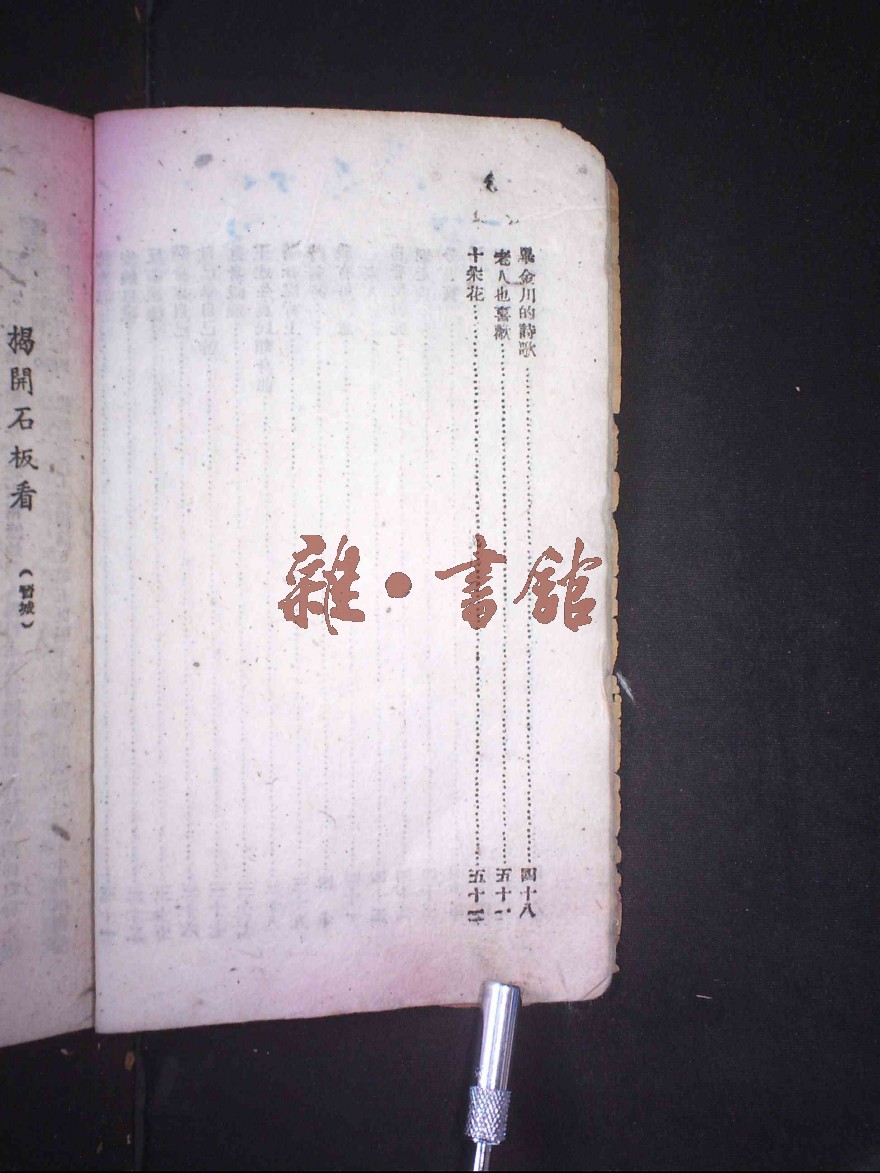 畢金川的詩歌……四十八
老人也喜歡……五十一
十朵花……五十二
揭開石板看
(晉城)
雜·書館